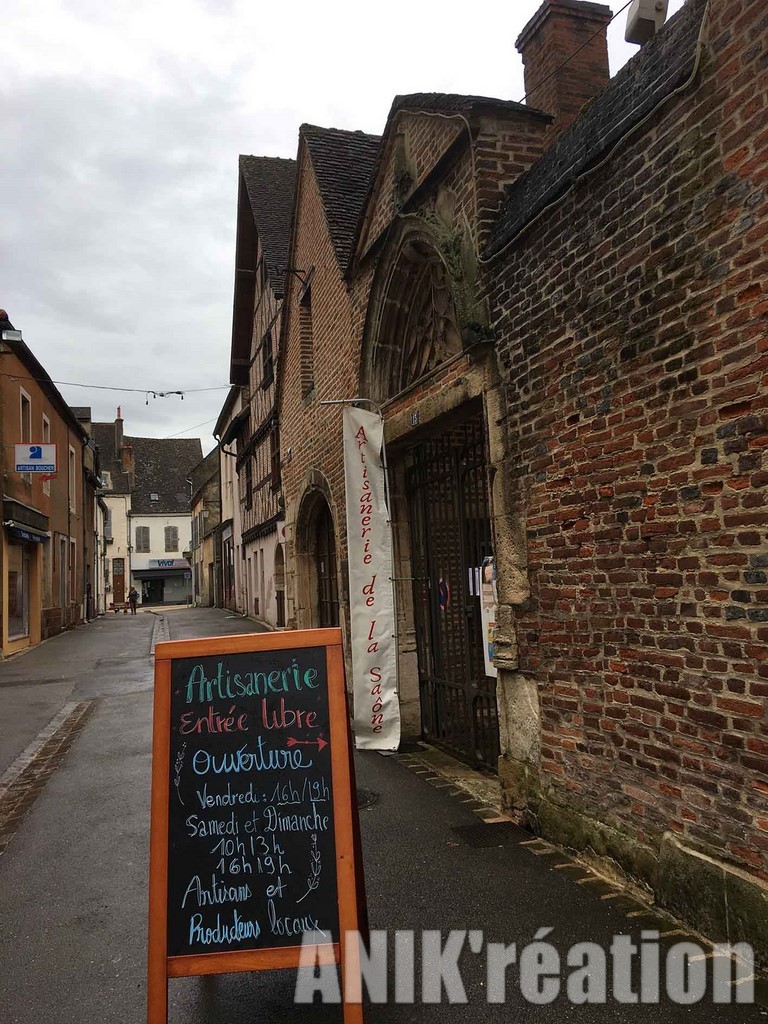 ARTISAN BOUCHER
Vival
Artisanerie de la Saône
Artisanerie
Entrée libre
Ouverture
Vendredi : 16h/19h
Samedi et Dimanche
10h 13h
16h 19h
Artisans et
Producteurs locaux
ANIK'réation